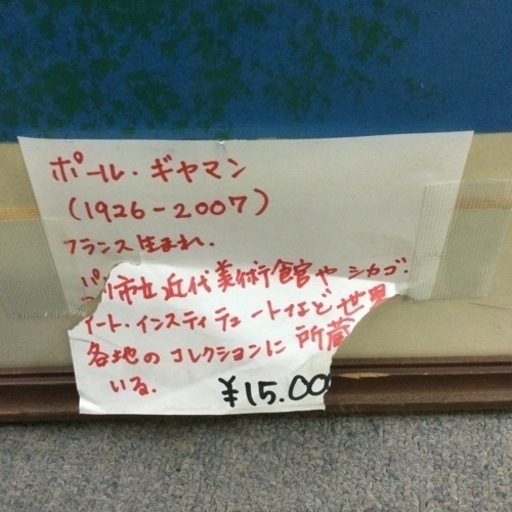 ポール・ギヤマン
(1926-2007)
フランス生まれ.
パリ市立近代美術館やシカゴ・
アート・インスティテュートなど世界
各地のコレクションに所蔵
いる.
¥15.00